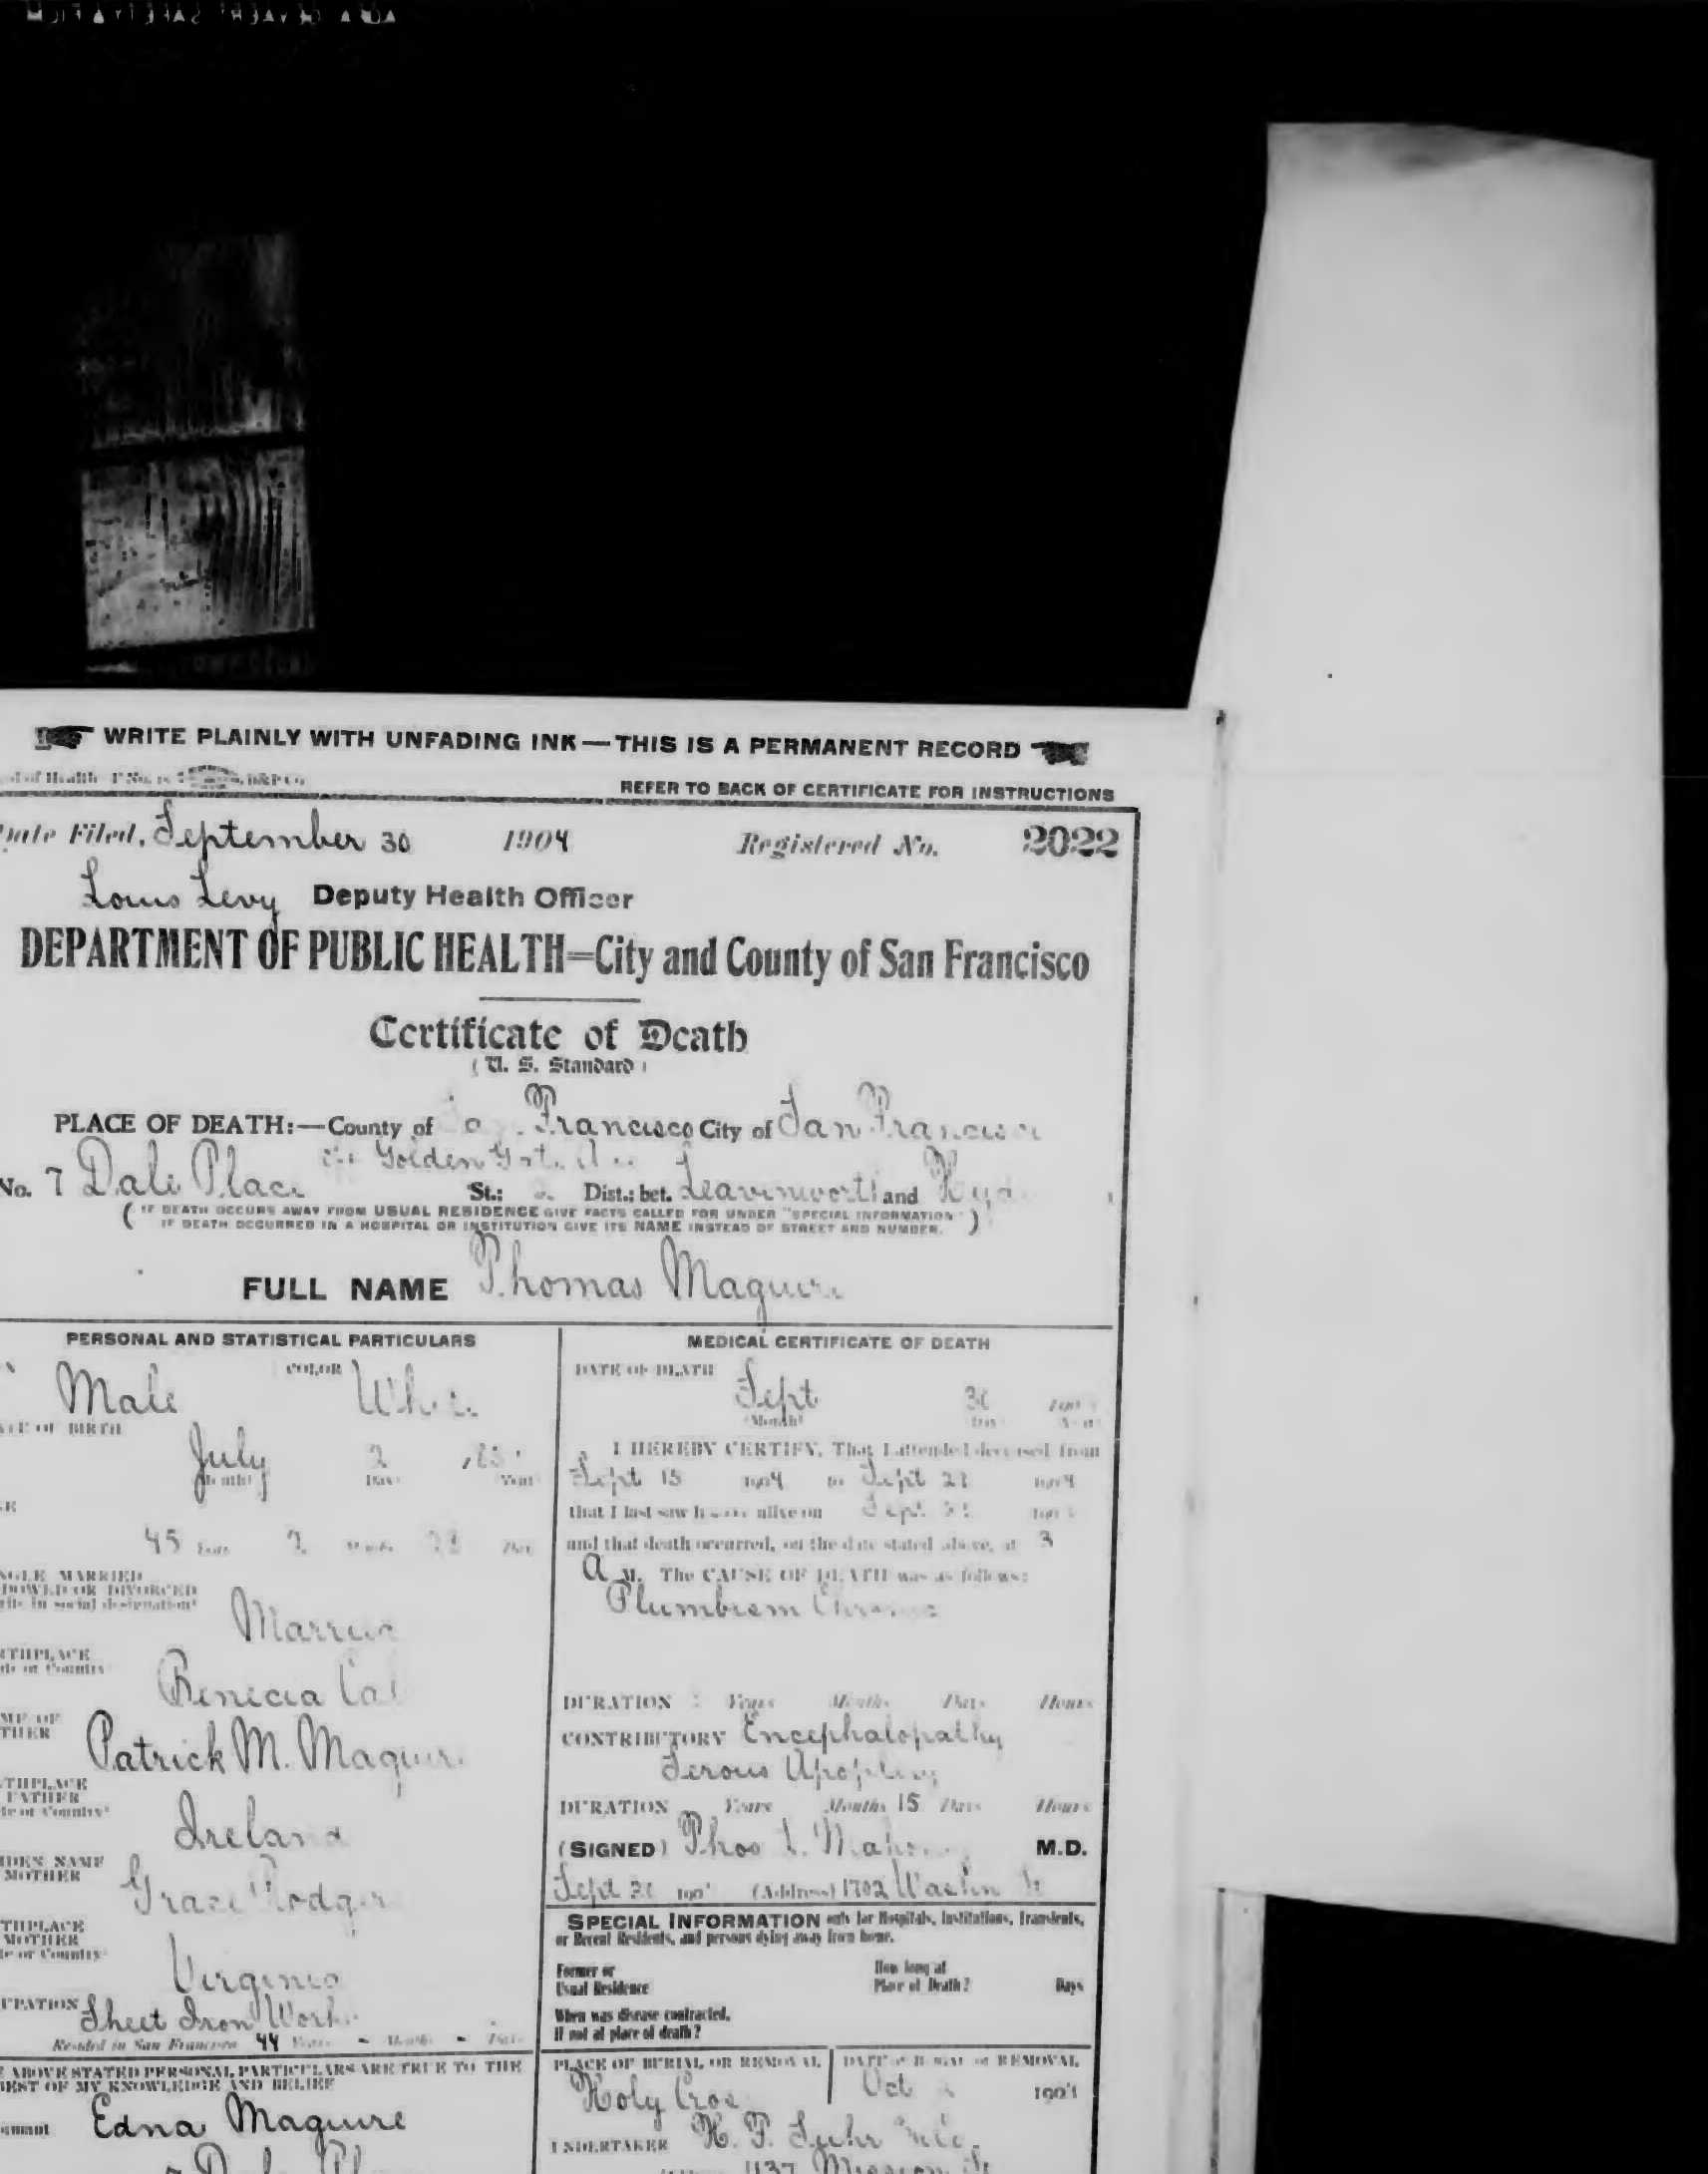 WRITE PLAINLY WITH UNFADING INK—THIS IS A PERMANENT RECORD
of Health
REFER TO BACK OF CERTIFICATE FOR INSTRUCTIONS
Date Filed, September 30 1904 Registered No. 2022
Louis Levy Deputy Health Officer
DEPARTMENT OF PUBLIC HEALTH=City and County of San Francisco
Certificate of Death
(U. S. Standard)
PLACE OF DEATH:—County of Francisco City of San Francisco
Golden
No. 7 Dale Place St.; Dist.; bet. Leavenworth and Hyde
(IF DEATH OCCURS AWAY FROM USUAL RESIDENCE GIVE FACTS CALLED FOR UNDER "SPECIAL INFORMATION"
IF DEATH OCCURRED IN A HOSPITAL OR INSTITUTION GIVE ITS NAME INSTEAD OF STREET AND NUMBER.)
FULL NAME Thomas Maguire
PERSONAL AND STATISTICAL PARTICULARS
COLOR
Male White
OF BIRTH
July 2
(Month) (Day) (Year)
45 Years 2 Months 28 Days
MARRIED
OR DIVORCED
in social designation)
Married
or Country
Benicia Cal
Patrick M. Maguire
FATHER
or Country)
Ireland
NAME
MOTHER
Grace Rodger
MOTHER
or Country
Virginia
Sheet Iron Work
Resided in San Francisco 44 Years - Months - Days
ABOVE STATED PERSONAL PARTICULARS ARE TRUE TO THE
BEST OF MY KNOWLEDGE AND BELIEF
Edna Maguire
MEDICAL CERTIFICATE OF DEATH
DATE OF DEATH
Sept 30
(Month) (Day) (Year)
I HEREBY CERTIFY, That I attended deceased from
Sept 15 1904 to Sept 1904
that I last saw h alive on Sept
and that death occurred, on the date stated above, at 3
A M. The CAUSE OF DEATH was as follows:
Plumbism Chronic
DURATION Years Months Days Hours
CONTRIBUTORY Encephalopathy
Serous Apoplexy
DURATION Years Months 15 Days Hours
(SIGNED) Thos M.D.
Sept 30 190 (Address) 1702 Washn St
SPECIAL INFORMATION only for Hospitals, Institutions, Transients,
or Recent Residents, and persons dying away from home.
Former or How long at
Usual Residence Place of Death? Days
When was disease contracted,
If not at place of death?
PLACE OF BURIAL OR REMOVAL DATE of BURIAL or REMOVAL
Holy Cross Oct 1904
UNDERTAKER H. F. Suhr
1137 Mission St